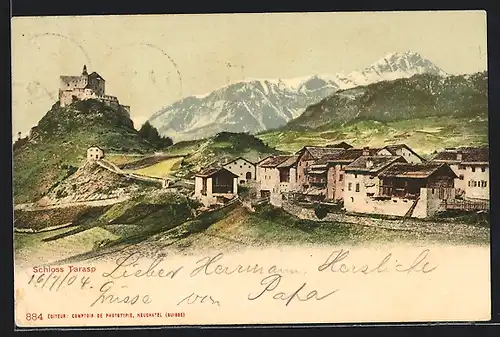 Schloss Tarasp
Lieber Herrmann Herzliche
16/7/04. Grüsse von Papa
884 EDITEUR: COMPTOIR DE PHOTOTYPIE, NEUCHATEL (SUISSE)